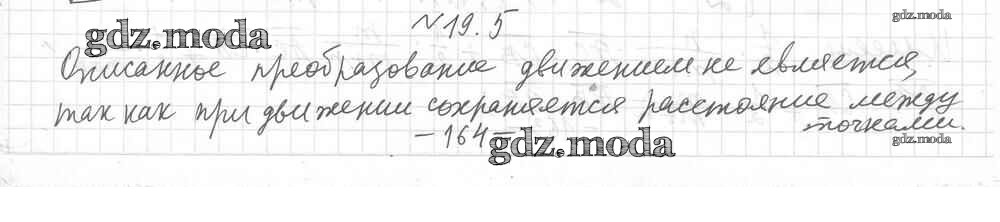 №19.5
gdz.moda
gdz.moda
Описанное преобразование движением не является,
gdz.moda
так как при движении сохраняется расстояние между
точками.
-164-
gdz.moda
gdz.moda
gdz.moda